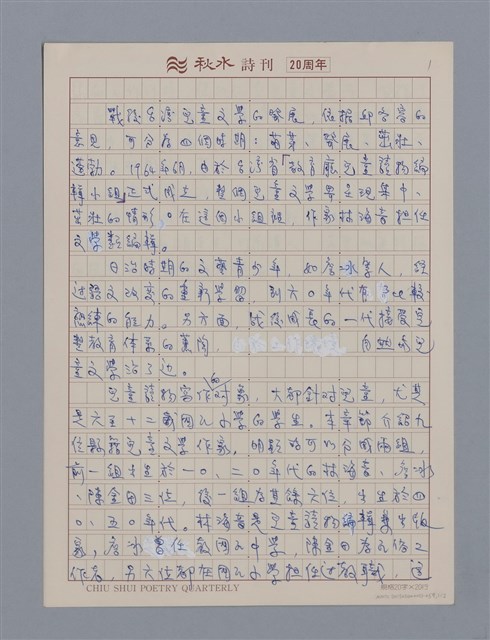 秋水詩刊 20周年
1
戰後台灣兒童文學的發展,依據邱各容的
意見,可分為四個時期:萌芽、發展、茁壯、
蓬勃。1964年6月,由於台灣省「教育廳兒童讀物編
輯小組」正式成立,整個兒童文學界呈現集中、
茁壯的情形。在這個小組裡,作家林海音擔任
文學類編輯。
日治時期的文藝青少年,如詹冰等人,經
過語文改變的重新學習,到六〇年代有較
熟練的能力。另方面,戰後成長的一代接受完
整教育體系的薰陶,自然為兒
童文學活了邊。
兒童讀物寫作的對象,大都針對兒童,尤是
是六至十二歲國民小學的學生。本章節介紹九
位縣籍兒童文學作家,明顯的可以分成兩組,
前一組出生於一〇、二〇年代的林海音、詹冰
、陳金田三位,後一組為其餘六位,出生於四
〇、五〇年代。林海音是兒童讀物編輯兼出版
家,詹冰曾任教國民中學,陳金田為民俗工
作者,另六位都在國民小學擔任過教職,這
CHIU SHUI POETRY QUARTERLY